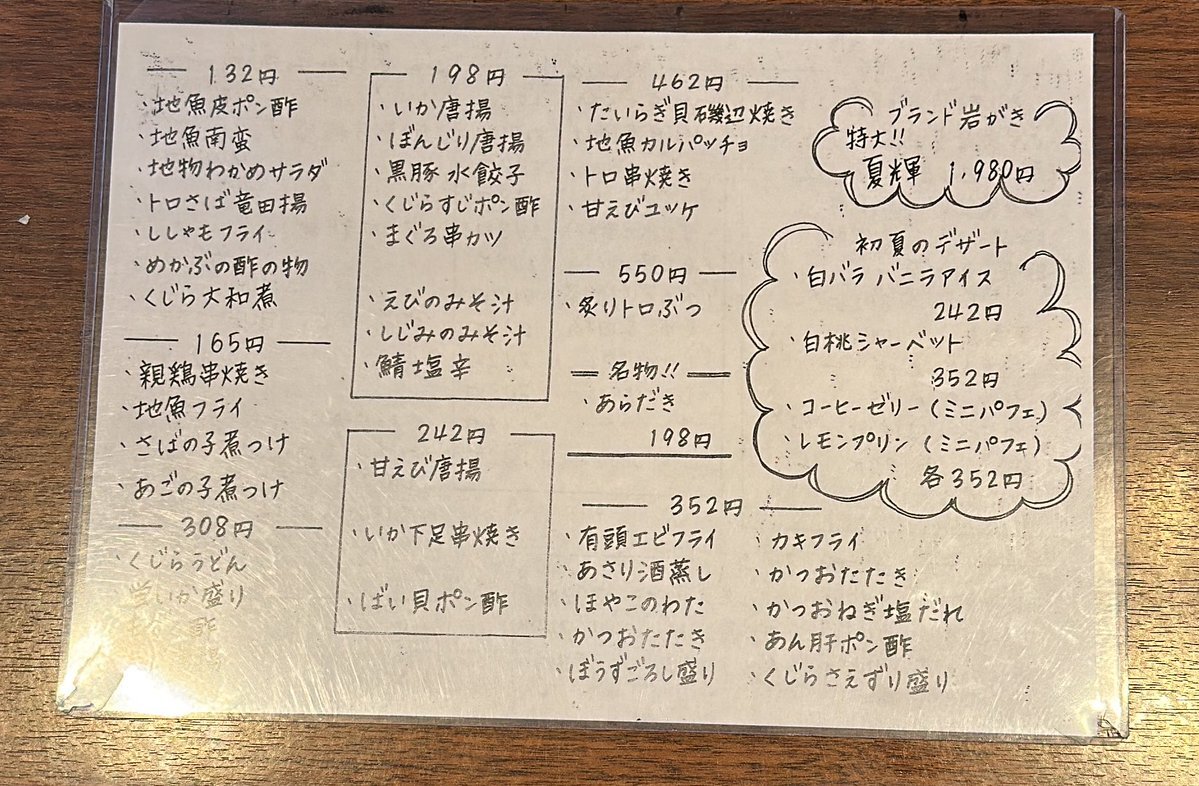 132円
・地魚皮ポン酢
・地魚南蛮
・地物わかめサラダ
・トロさば竜田揚
・ししゃもフライ
・めかぶの酢の物
・くじら大和煮
165円
・親鶏串焼き
・地魚フライ
・さばの子煮つけ
・あごの子煮つけ
308円
・くじらうどん
いか盛り
酢
198円
・いか唐揚
・ぼんじり唐揚
・黒豚 水餃子
・くじらすじポン酢
・まぐろ串カツ
・えびのみそ汁
・しじみのみそ汁
・鯖塩辛
242円
・甘えび唐揚
・いか下足串焼き
・ばい貝ポン酢
462円
・たいらぎ貝磯辺焼き
・地魚カルパッチョ
・トロ串焼き
・甘えびユッケ
550円
・炙りトロぶつ
名物!!
・あらだき
198円
352円
・有頭エビフライ
・あさり酒蒸し
・ほやこのわた
・かつおたたき
・ぼうずごろし盛り
・カキフライ
・かつおたたき
・かつおねぎ塩だれ
・あん肝ポン酢
・くじらさえずり盛り
ブランド岩がき
特大!!
夏輝 1,980円
初夏のデザート
・白バラ バニラアイス
242円
・白桃シャーベット
352円
・コーヒーゼリー（ミニパフェ）
・レモンプリン（ミニパフェ）
各352円